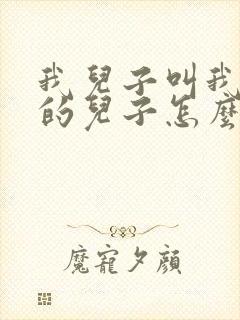 我兒子叫我
的兒子怎麼
魔寵夕顏